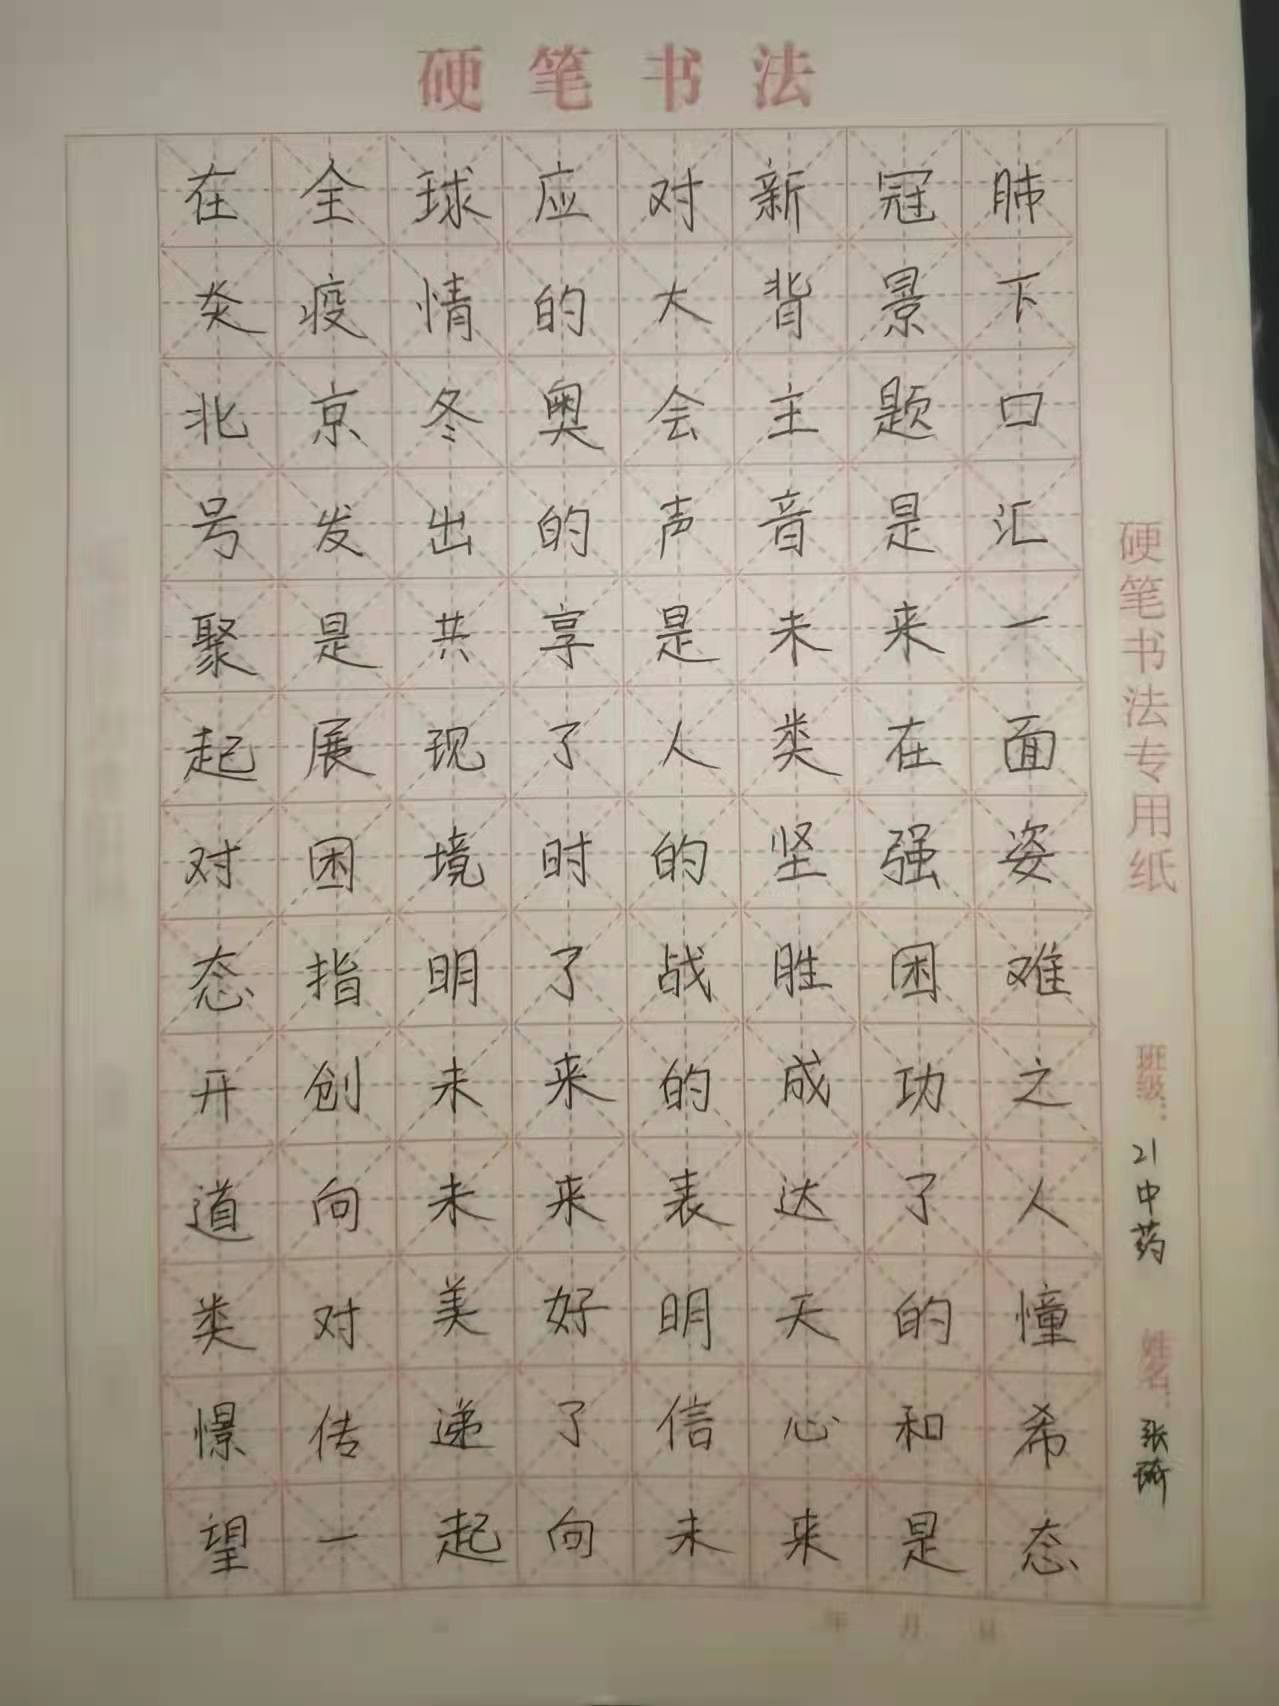 硬笔书法
在全球应对新冠肺
炎疫情的大背景下
北京冬奥会主题口
号发出的声音是汇
聚是共享是未来一
起展现了人类在面
对困境时的坚强姿
态指明了战胜困难
开创未来的成功之
道向未来表达了人
类对美好明天的憧
憬传递了信心和希
望一起向未来是态
硬笔书法专用纸
班级：21中药
姓名：张
年 月 日